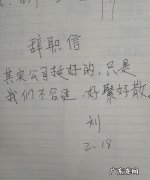 辞职信
其实公司挺好的，只是
我们不合适，好聚好散。
刘
2.18
广东座网